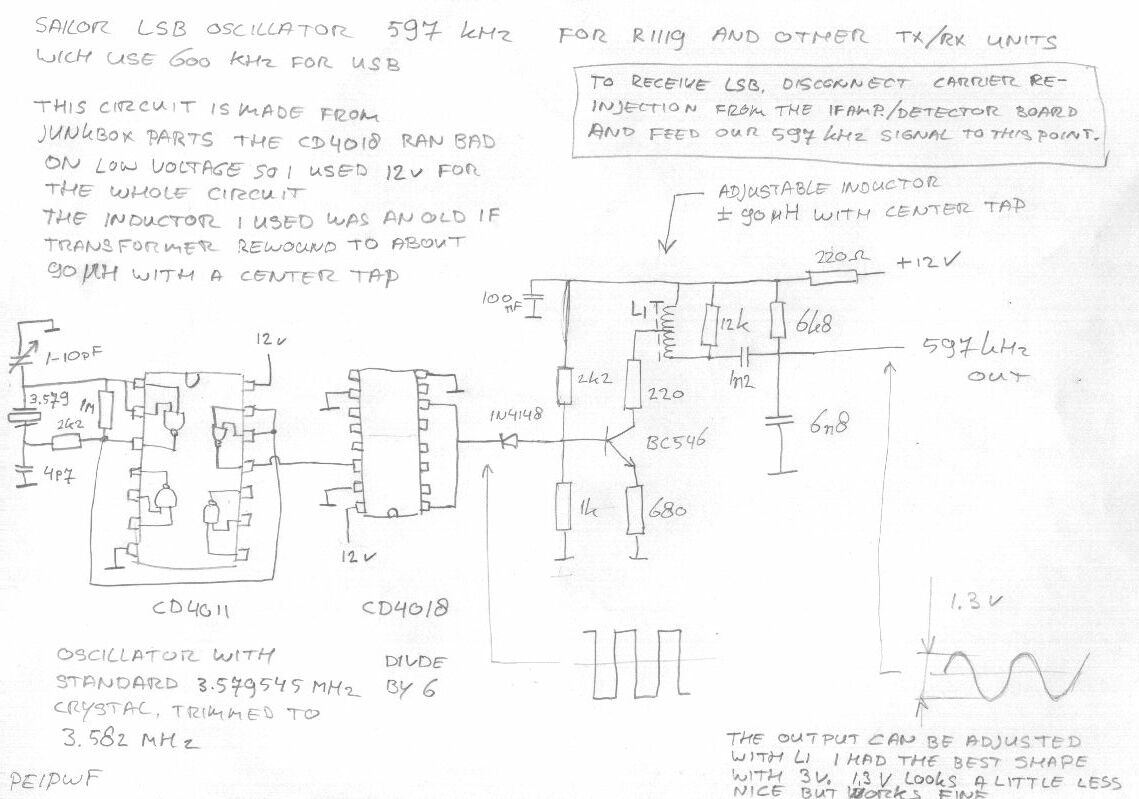 SAILOR LSB OSCILLATOR 597 kHz FOR R1119 AND OTHER TX/RX UNITS
WICH USE 600 KHz FOR USB
TO RECEIVE LSB, DISCONNECT CARRIER RE-
INJECTION FROM THE IFAMP./DETECTOR BOARD
AND FEED OUR 597 kHz SIGNAL TO THIS POINT.
THIS CIRCUIT IS MADE FROM
JUNKBOX PARTS THE CD4018 RAN BAD
ON LOW VOLTAGE SO I USED 12V FOR
THE WHOLE CIRCUIT
THE INDUCTOR I USED WAS AN OLD IF
TRANSFORMER REWOUND TO ABOUT
90 µH WITH A CENTER TAP
ADJUSTABLE INDUCTOR
± 90µH WITH CENTER TAP
220Ω
+12V
100
nF
L1
12k
6k8
1n2
597 kHz
OUT
1-10pF
12v
3.579
1M
2k2
4p7
1N4148
2k2
220
BC546
6n8
1k
680
12v
CD4011
CD4018
1.3v
OSCILLATOR WITH
STANDARD 3.579545 MHz
CRYSTAL, TRIMMED TO
3.582 MHz
DIVDE
BY 6
THE OUTPUT CAN BE ADJUSTED
WITH L1 I HAD THE BEST SHAPE
WITH 3V. 1.3V LOOKS A LITTLE LESS
NICE BUT WORKS FINE
PE1PWF